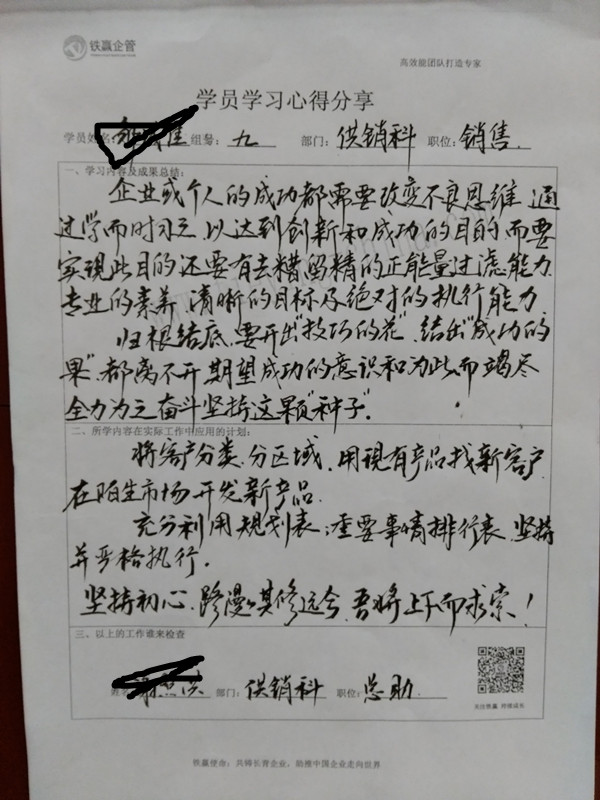 铁赢企管
高效能团队打造专家
学员学习心得分享
学员姓名: 组号: 九 部门: 供销科 职位: 销售.
一、学习内容及成果总结:
企业或个人的成功都需要改变不良思维 通
过学而时习之 以达到创新和成功的目的 而要
实现此目的 还要有去糟留精的正能量过滤能力
专业的素养 清晰的目标及绝对的执行能力
归根结底 要开出"技巧的花" 结出"成功的
果" 都离不开期望成功的意识和为此而竭尽
全力为之奋斗坚持这颗"种子".
二、所学内容在实际工作中应用的计划:
将客户分类 分区域 用现有产品找新客户
在陌生市场开发新产品
充分利用规划表: 重要事情排行表 坚持
并严格执行.
坚持初心 路漫々其修远兮 吾将上下而求索!
三、以上的工作谁来检查
姓名 部门: 供销科 职位: 总助.
关注铁赢 持续成长
铁赢使命: 共铸长青企业, 助推中国企业走向世界